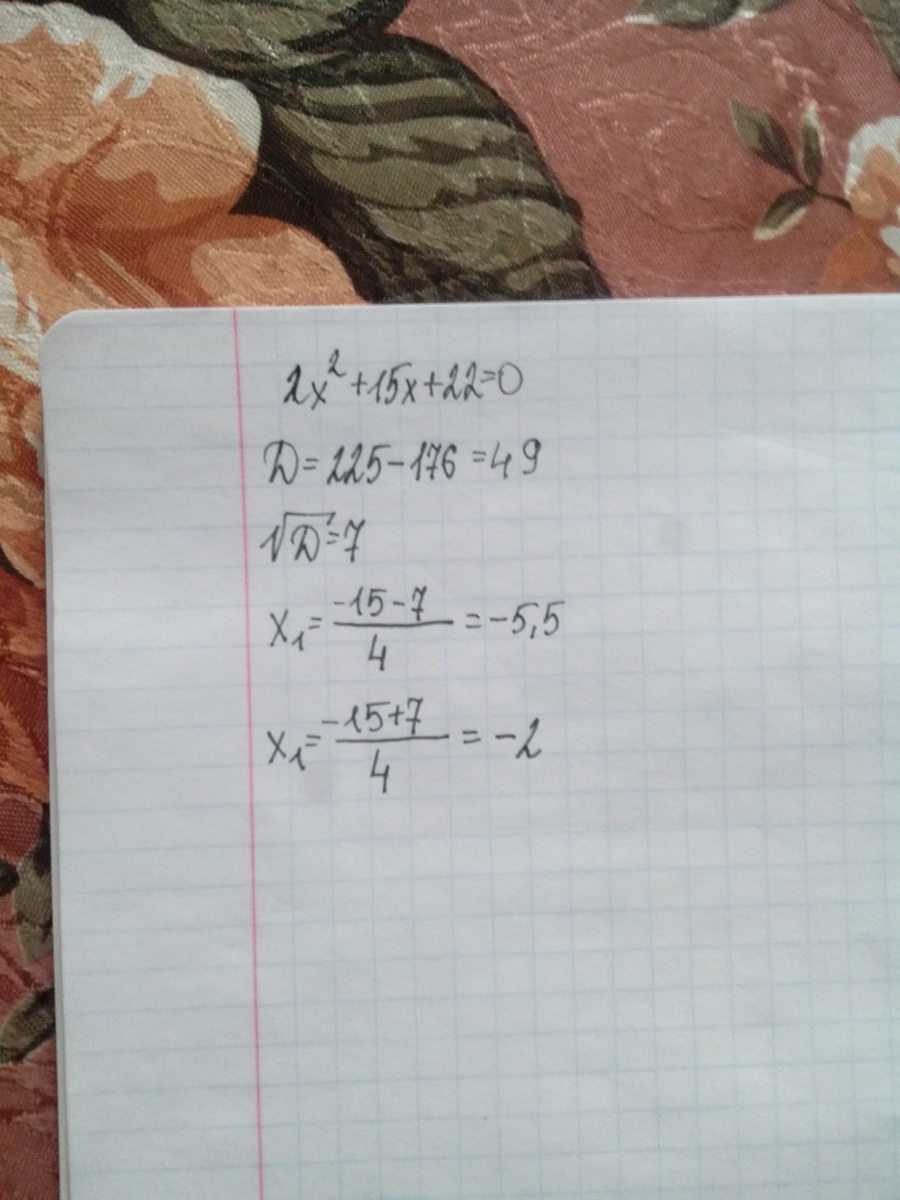 2x²+15x+22=0
D=225-176=49
√D=7
x₁=(-15-7)/4=-5,5
x₁=(-15+7)/4=-2